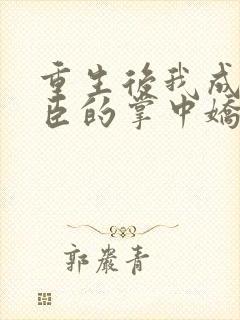 重生後我成
臣的掌中嬌
郭嚴青